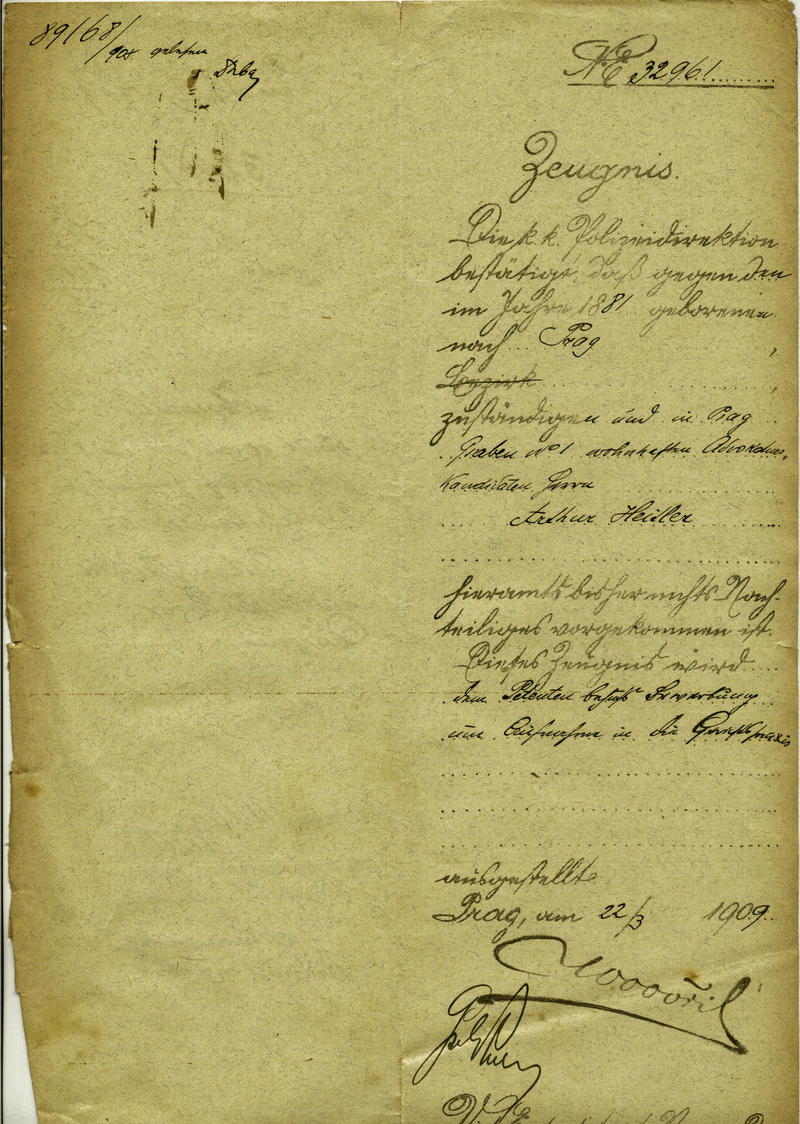 89168/908 gelesen
No 32961
Zeugnis.
Die k. k. Polizeidirektion
bestätigt, daß gegen den
im Jahre 1881 geborenen
nach Prag,
Bezirk,
zuständigen und in Prag
Graben No 1 wohnhaften Advokaturs-
kandidaten Herrn
Arthur Heisler
hieramts bisher nichts Nach-
teiliges vorgekommen ist.
Dieses Zeugnis wird
dem Petenten behufs Bewerbung
um Aufnahme in die Gerichtspraxis
ausgestellt
Prag, am 22/3 1909.